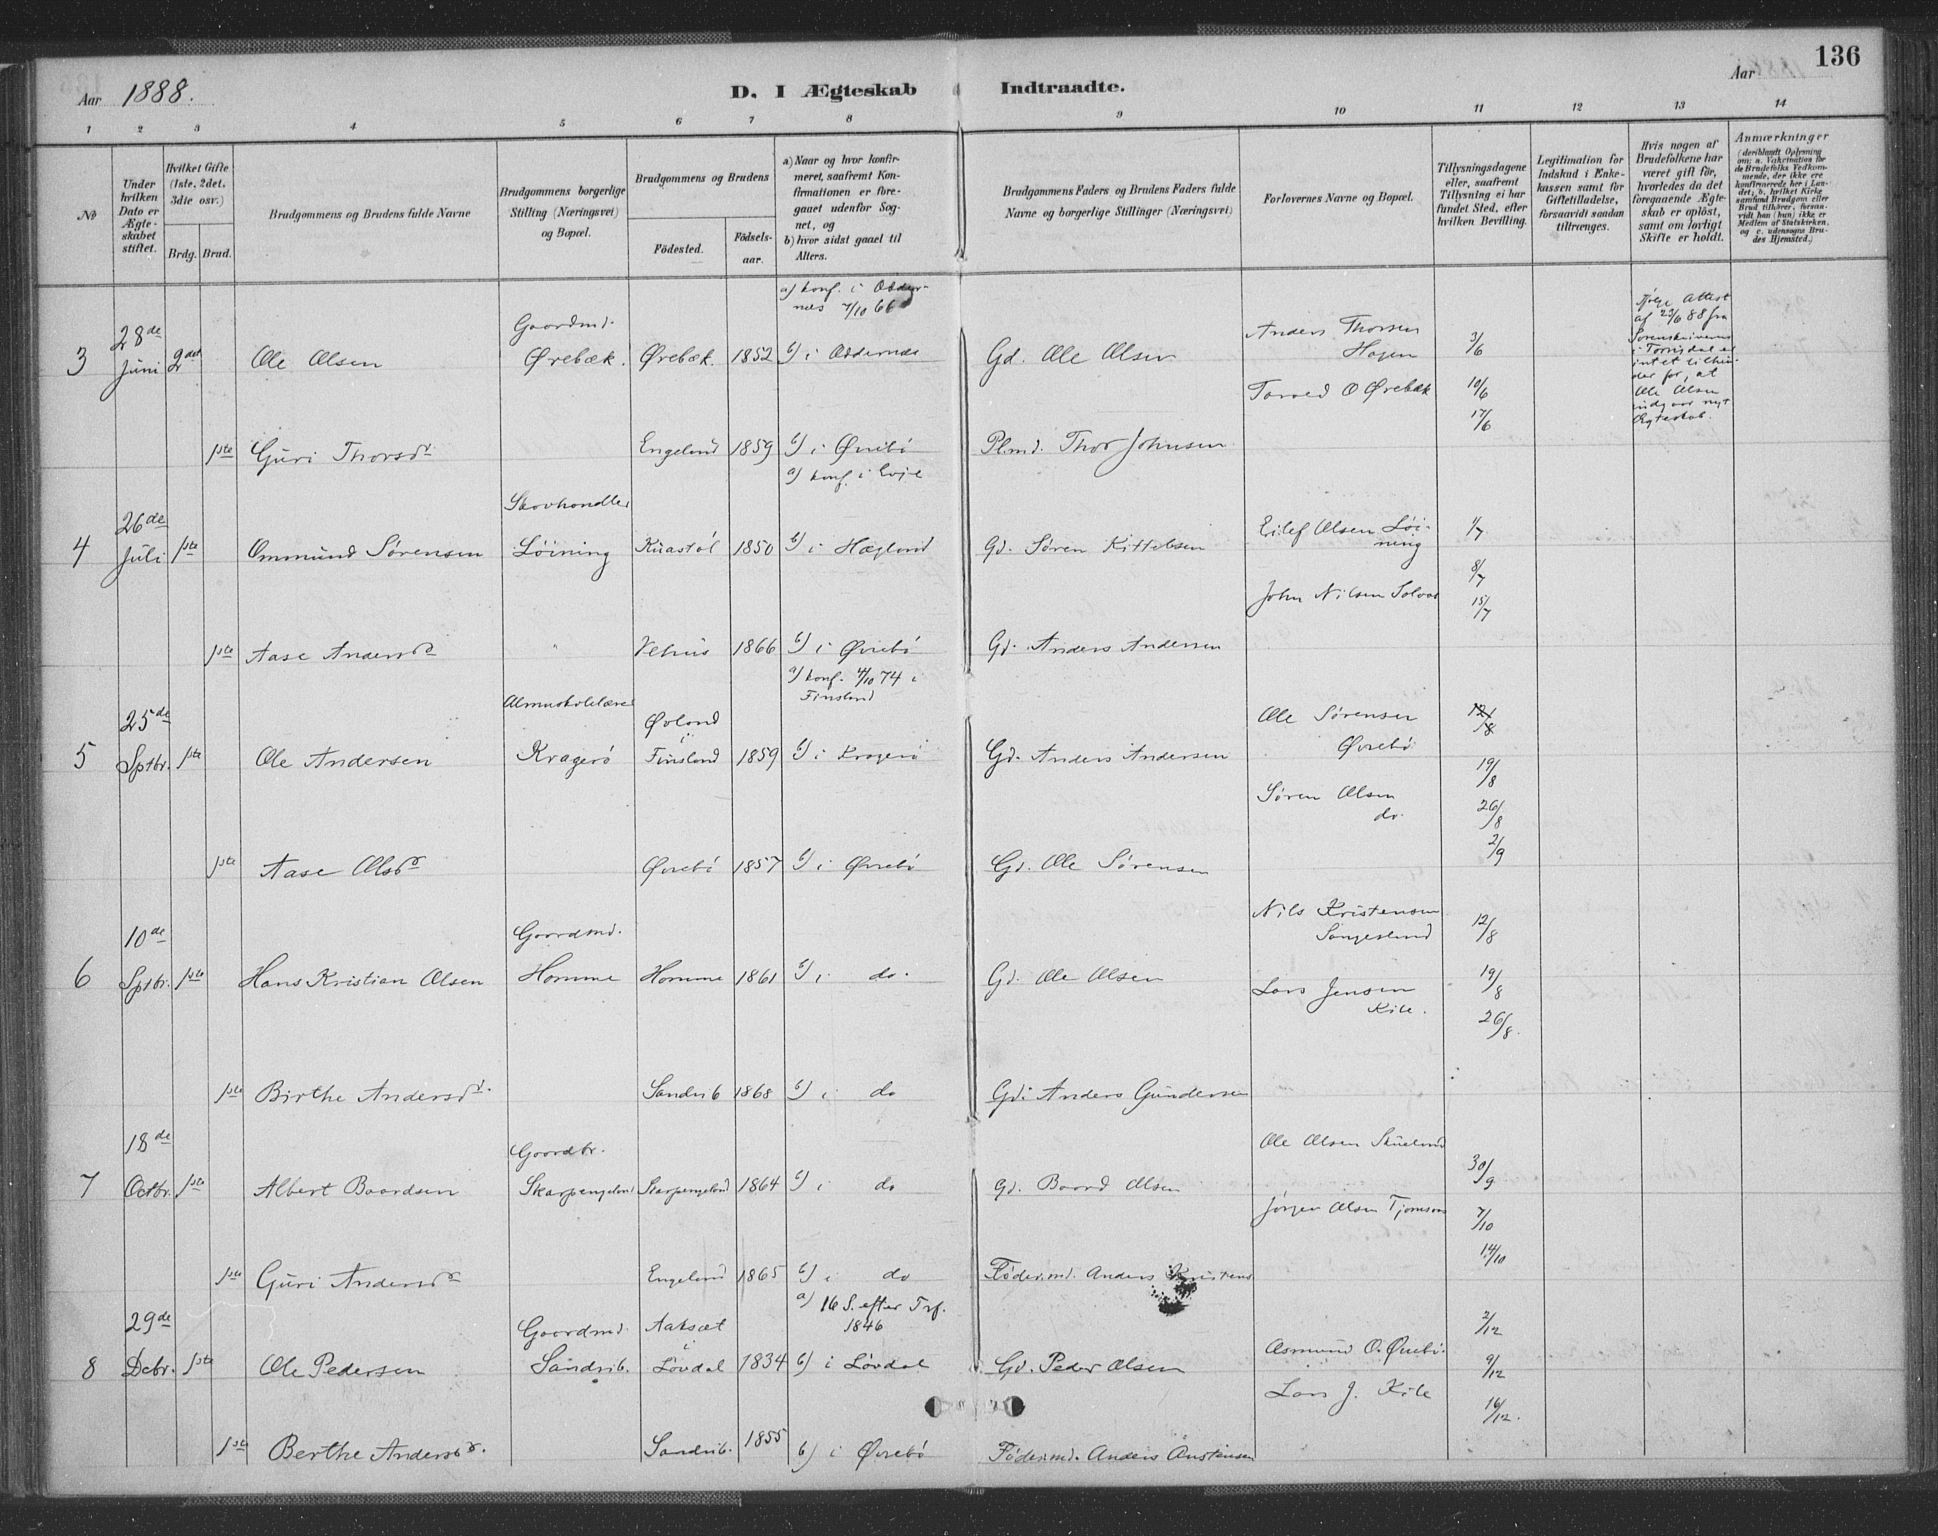 136
Aar 1888.
D. I Ægteskab Indtraadte.
Aar
1 2 3 4 5 6 7 8 9 10 11 12 13 14
No
Under hvilken Dato er Ægteskabet stiftet.
Hvilket Gifte (1ste, 2det, 3die osv.)
Brdg. Brud.
Brudgommens og Brudens fulde Navne
Brudgommens borgerlige Stilling (Næringsvei) og Bopæl.
Brudgommens og Brudens
Fødested.
Fødselsaar.
a) Naar og hvor konfirmeret, saafremt Konfirmationen er foregaaet udenfor Sognet, og
b) hvor sidst gaaet til Alters.
Brudgommens Faders og Brudens Faders fulde Navne og borgerlige Stillinger (Næringsvei)
Forlovernes Navne og Bopæl.
Tillysningsdagene eller, saafremt Tillysning ei har fundet Sted, efter hvilken Bevilling.
Legitimation for Indskud i Enkekassen samt for Giftetilladelse, forsaavidt saadan tiltrænges.
Hvis nogen af Brudefolkene har været gift før, hvorledes da det foregaaende Ægteskab er opløst, samt om lovligt Skifte er holdt.
Anmærkninger
(deriblandt Oplysning om: a. Vakcination for de Brudefolks Vedkommende, der ikke ere konfirmerede her i Landet; b. hvilket Kirkesamfund Brudgom eller Brud tilhører, forsaavidt han (hun) ikke er Medlem af Statskirken, og c. udensogns Brudes Hjemsted.)
a) konf. i Oddernes 7/10 66
3 28de Juni 2det Ole Olsen Gaardmd. Ørebæk. Ørebæk. 1852 b) i Oddernes Gd. Ole Olsen Anders Thorsen Hagen 3/6
Torved O Ørebæk 10/6 17/6
Ifølge Attest af 23/6 88 fra Sorenskriveren i Torrisdal er intet til hinder for, at Ole Olsen indgaar nyt Ægteskab.
1ste Guri Thorsdr Engeland 1859 b) i Øvrebø Plmd. Thor Johnsen
a) konf. i Evje
4 26de Juli 1ste Ommund Sørensen Skovhandler Løining Kuastøl 1850 b) i Hægland Gd. Søren Kittelsen Eilef Olsen Løining 1/7
8/7
John Nilsen Solaas 15/7
1ste Aase Andersdr " Vehus 1866 b) i Øvrebø Gd. Anders Andersen
a) konf. 4/10 74 i Finsland
5 25de Sptbr. 1ste Ole Andersen Almueskolelærer Kragerø Øvland i Finsland 1859 b) i Kragerø Gd. Anders Andersen Ole Sørensen Øvrebø 12/8
19/8
Søren Olsen do. 26/8
2/9
1ste Aase Olsdr Øvrebø 1857 b) i Øvrebø Gd. Ole Sørensen
6 10de Sptbr. 1ste Hans Kristian Olsen Gaardmd. Homme Homme 1861 b) i do. Gd. Ole Olsen Nils Kristensen Sangesland 12/8
Lars Jensen Kile. 19/8
26/8.
1ste Birthe Andersdr. Sandrib 1868 b) i do Gd: Anders Gundersen
7 18de Octbr. 1ste Albert Baardsen Gaardbr. Skarpengeland Skarpengeland 1864 b) i do Gd. Baard Olsen Ole Olsen Skueland 30/9
Jørgen Olsen Tjomsaas 7/10
14/10
1ste Guri Andersdr Engeland 1865 b) i do Fødermd. Anders Kristens
a) 16 S. efter Trf. 1846
8 29de Debr. 1ste Ole Pedersen Gaardmd. Sandrib. Aaksæt i Løvdal 1834 b) i Løvdal Gd. Peder Olsen Asmund O. Øvrebø. 2/12
9/12
Lars J. Kile 16/12.
1ste Berthe Andersdr. Sandrib. 1855 b) i Øvrebø Fødermd. Anders Anstensen